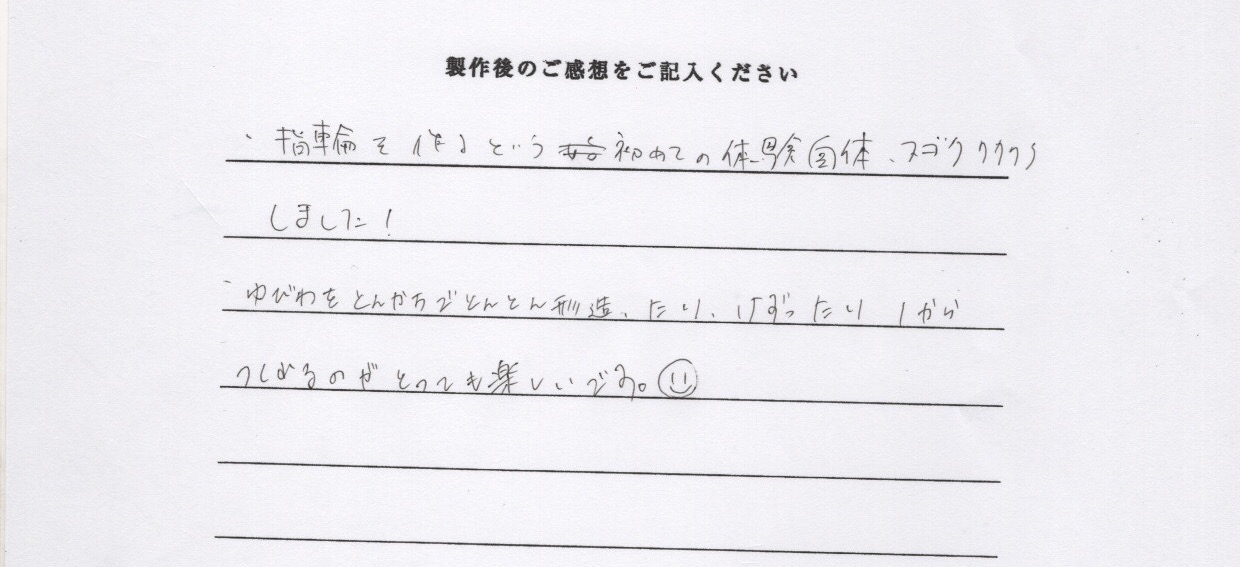 製作後のご感想をご記入ください
・指輪を作るという初めての体験自体、スゴクワクワク
しました!
・ゆびわをとんかちでとんとん形造ったり、けずったり 1から
つくるのがとっても楽しいです。